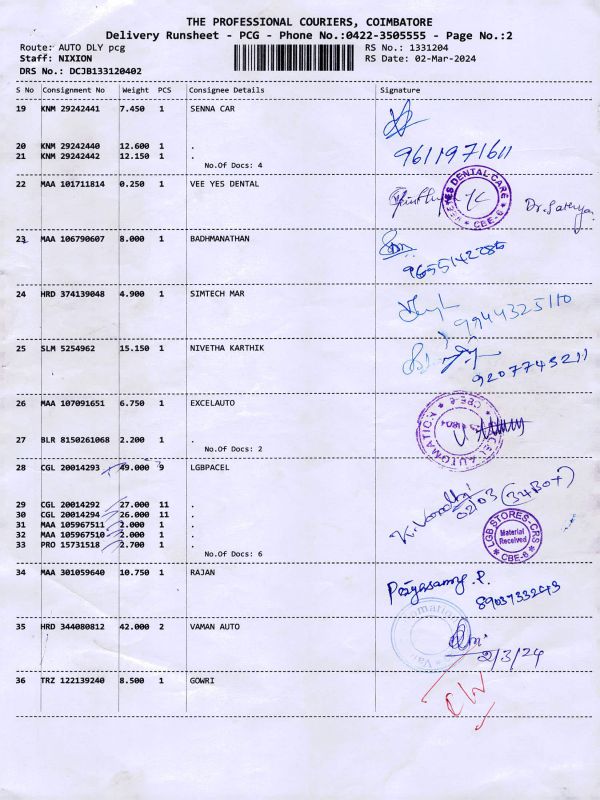 THE PROFESSIONAL COURIERS, COIMBATORE
Delivery Runsheet - PCG - Phone No.:0422-3505555 - Page No.:2
Route: AUTO DLY pcg RS No.: 1331204
Staff: NIXION RS Date: 02-Mar-2024
DRS No.: DCJB133120402
S No Consignment No Weight PCS Consignee Details Signature
19 KNM 29242441 7.450 1 SENNA CAR
20 KNM 29242440 12.600 1 .
21 KNM 29242442 12.150 1 . 9611971611
No.Of Docs: 4
22 MAA 101711814 0.250 1 VEE YES DENTAL
VEE YES DENTAL CARE CBE-6
23 MAA 106790607 8.000 1 BADHMANATHAN
9655142286
24 HRD 374139048 4.900 1 SIMTECH MAR
9944325110
25 SLM 5254962 15.150 1 NIVETHA KARTHIK
9207743211
26 MAA 107091651 6.750 1 EXCELAUTO
27 BLR 8150261068 2.200 1 .
No.Of Docs: 2
28 CGL 20014293 49.000 9 LGBPACEL
02/03 (34BOX)
29 CGL 20014292 27.000 11 .
30 CGL 20014294 26.000 11 .
31 MAA 105967511 2.000 1 .
32 MAA 105967510 2.000 1 .
33 PRO 15731518 2.700 1 .
No.Of Docs: 6
LGB STORES-CRS Material Received CBE-6
34 MAA 301059640 10.750 1 RAJAN
35 HRD 344080812 42.000 2 VAMAN AUTO
2/3/24
36 TRZ 122139240 8.500 1 GOWRI